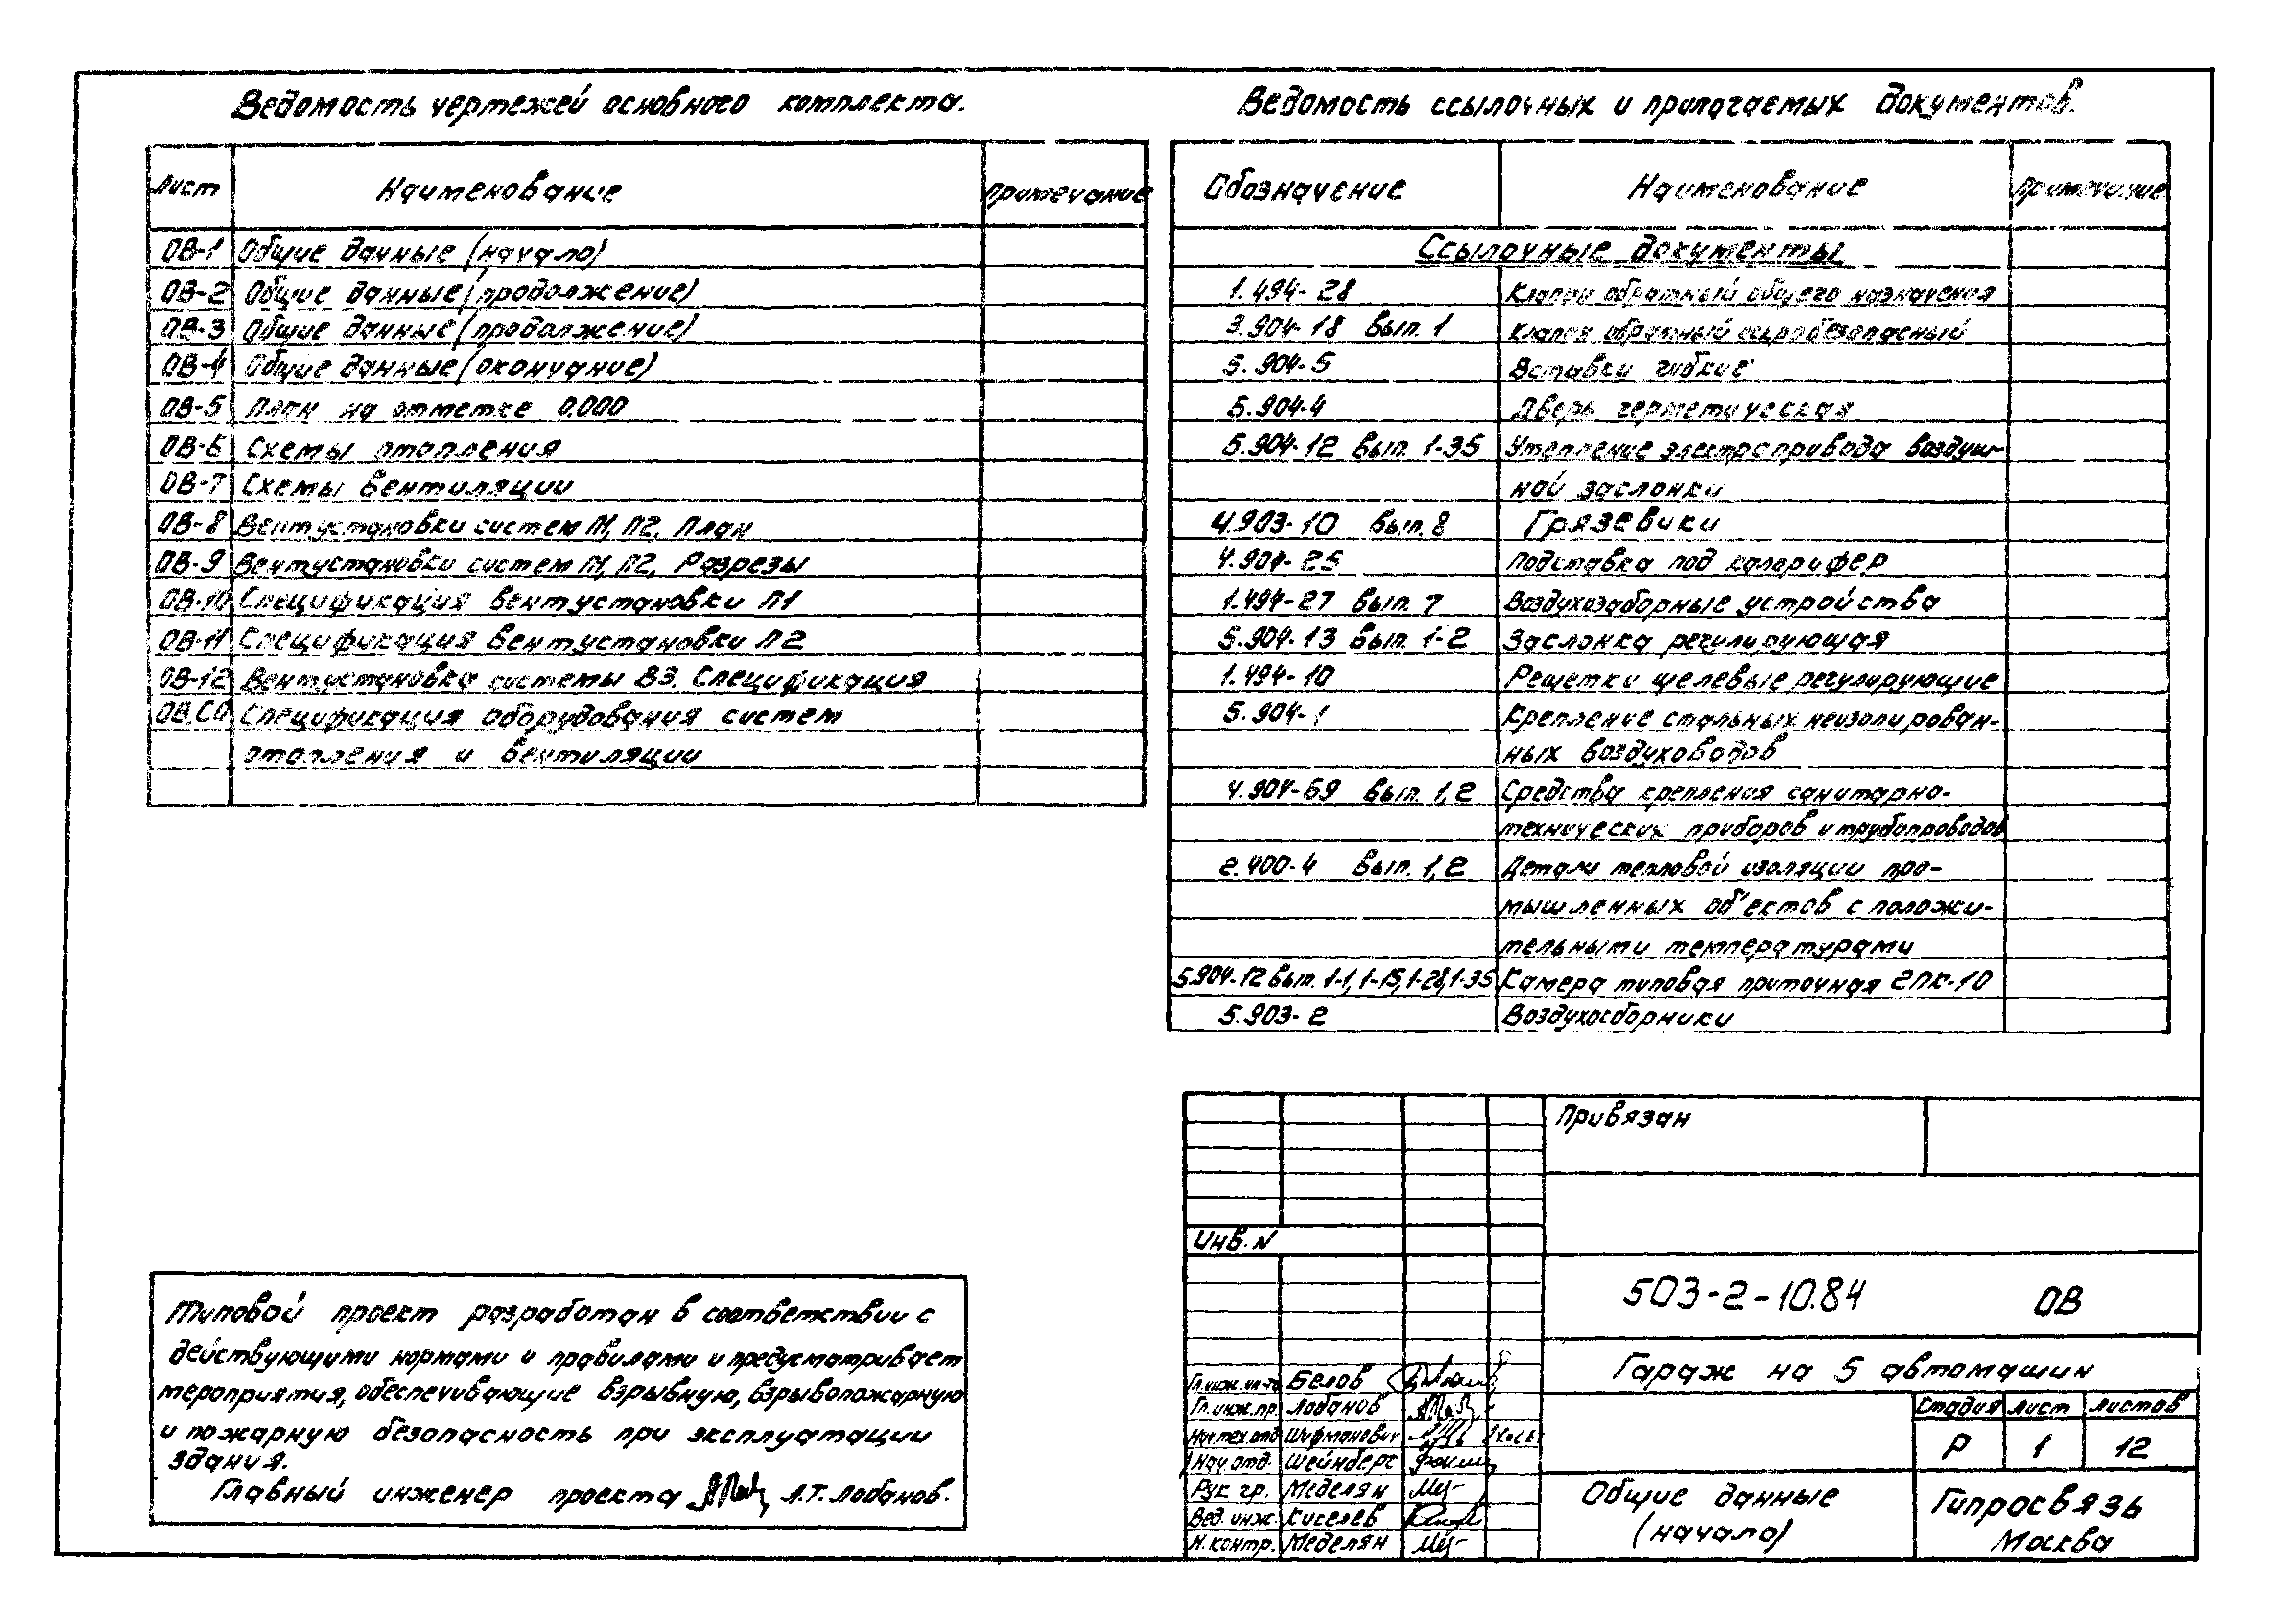 Ведомость чертежей основного комплекта.
Лист Наименование Примечание
ОВ-1 Общие данные (начало)
ОВ-2 Общие данные (продолжение)
ОВ-3 Общие данные (продолжение)
ОВ-4 Общие данные (окончание)
ОВ-5 План на отметке 0.000
ОВ-6 Схемы отопления
ОВ-7 Схемы вентиляции
ОВ-8 Вентустановки систем П1, П2, План
ОВ-9 Вентустановки систем П1, П2, Разрезы
ОВ-10 Спецификация вентустановки П1
ОВ-11 Спецификация вентустановки П2
ОВ-12 Вентустановка системы В3. Спецификация
ОВ.СО Спецификация оборудования систем
отопления и вентиляции
Ведомость ссылочных и прилагаемых документов.
Обозначение Наименование Примечание
Ссылочные документы
1.494-28 Клапан обратный общего назначения
3.904-18 вып. 1 Клапан обратный искробезопасный
5.904-5 Вставки гибкие
5.904-4 Дверь герметическая
5.904-12 вып. 1-35 Утепление электропривода воздуш-
ной заслонки
4.903-10 вып. 8 Грязевики
4.904-25 Подставка под калорифер
1.494-27 вып. 7 Воздухозаборные устройства
5.904-13 вып. 1-2 Заслонка регулирующая
1.494-10 Решетки щелевые регулирующие
5.904-1 Крепление стальных неизолирован-
ных воздуховодов
4.904-69 вып. 1,2 Средства крепления санитарно-
технических приборов и трубопроводов
2.400-4 вып. 1,2 Детали тепловой изоляции про-
мышленных об'ектов с положи-
тельными температурами
5.904-12 вып. 1-1, 1-15, 1-28, 1-35 Камера типовая приточная 2ПК-10
5.903-2 Воздухосборники
Типовой проект разработан в соответствии с
действующими нормами и правилами и предусматривает
мероприятия, обеспечивающие взрывную, взрывопожарную
и пожарную безопасность при эксплуатации
здания.
Главный инженер проекта Л.Т. Лобанов.
Привязан
Инв. N
503-2-10.84 ОВ
Гараж на 5 автомашин
Гл.инж.ин-та Белов
Гл.инж.пр. Лобанов
Нач.тех.отд Шифманович
Нач.отд. Шейнберг
Рук гр. Меделян
Вед. инж. Киселев
Н.контр. Меделян
Стадия Лист Листов
Р 1 12
Общие данные
(начало)
Гипросвязь
Москва